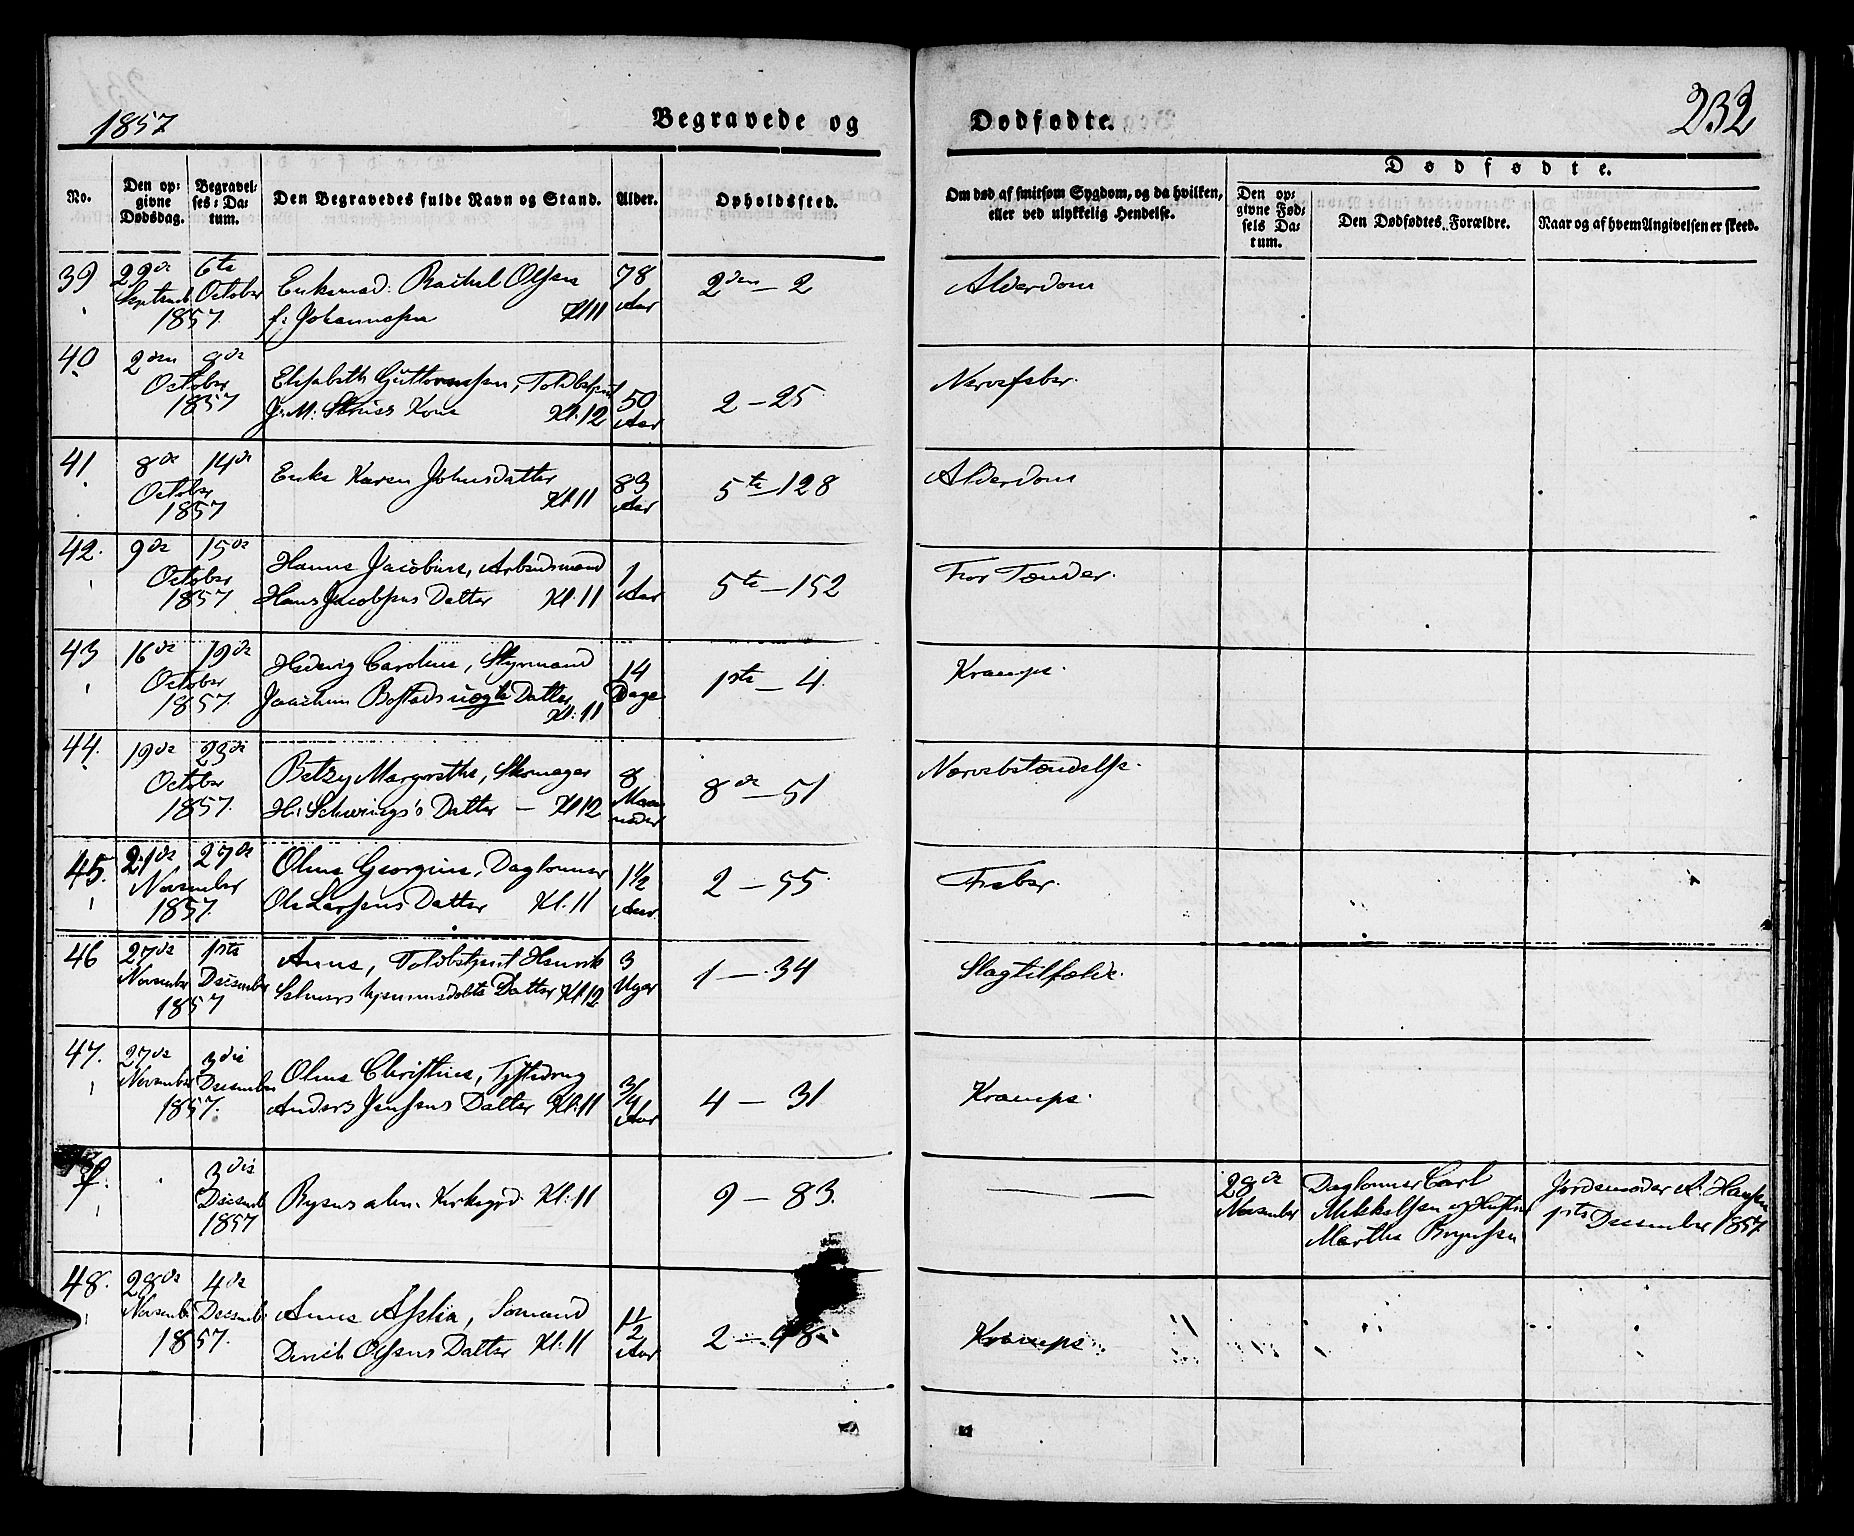 1857
Begravede og
Dødfødte.
232
No.
Den op-
givne
Dødsdag.
Begravel-
ses-Da-
tum.
Den Begravedes fulde Navn og Stand.
Alder.
Opholdssted.
Om død af smitsom Sygdom, og da hvilken,
eller ved ulykkelig Hendelse.
Dødfødte.
Den op-
givne Fød-
sels Da-
tum.
Den Dødfødtes Forældre.
Naar og af hvem Angivelsen er skeed.
39
29de
Septemb
6te
October
1857.
Enkemad. Rachel Olsen
f: Johannesen Kl 11
78
Aar
2den - 2
Alderdom
40
2den 8de
October
1857
Elisabeth Guttormsen, Toldbetjent
Kone Kl. 12
50
Aar
2 - 25
Nervefeber.
41
8de 14de
October
1857
Enke Karen Johnsdatter
Kl 11
83
Aar
5te - 128
Alderdom
42.
9de 15de
October
1857
Hanne Jacobine, Arbeidsmand
Hans Jacobsens Datter Kl. 11
1
Aar
5te - 152
For Tænder.
43
16de 19de
October
1857.
Hedevig Caroline, Styrmand
Joachim uægte Datter
Kl: 11
14
Dage
1ste - 4.
Krampe.
44.
19de 23de
October
1857.
Betzy Margrethe, Skomager
H: Schwings's Datter - Kl 12
8
Maa-
neder
8de - 51
Nervebetændelse.
45.
21de 27de
November
1857.
Oline Georgine, Dagloner
Ole Larsens Datter Kl. 11
1 1/2
Aar.
2 - 55.
Feber.
46
27de
November
1ste
Desember
1857
Anne, Toldbetjent Henrik
hjemmedøbte Datter Kl 12
3
Uger
1 - 34
Slagtilfælde.
47.
27de
November
3die
Desember
1857.
Oline Christine,
Anders Jensens Datter Kl. 11
3/4
Aar
4 - 31
Krampe.
3die
Desemb
1857
Kirkegrd. Kl: 11
9 - 83.
28de
November
Dagloner Carl
Mikkelsen og Hustru
Marthe
Jordemoder A. Hansen
1ste Desember 1857
48.
28de
Novemb
4de
Desemb
1857.
Anne Aselia, Sømand
Olsens Datter Kl. 11
1 1/2
Aar
2 - 48
Krampe